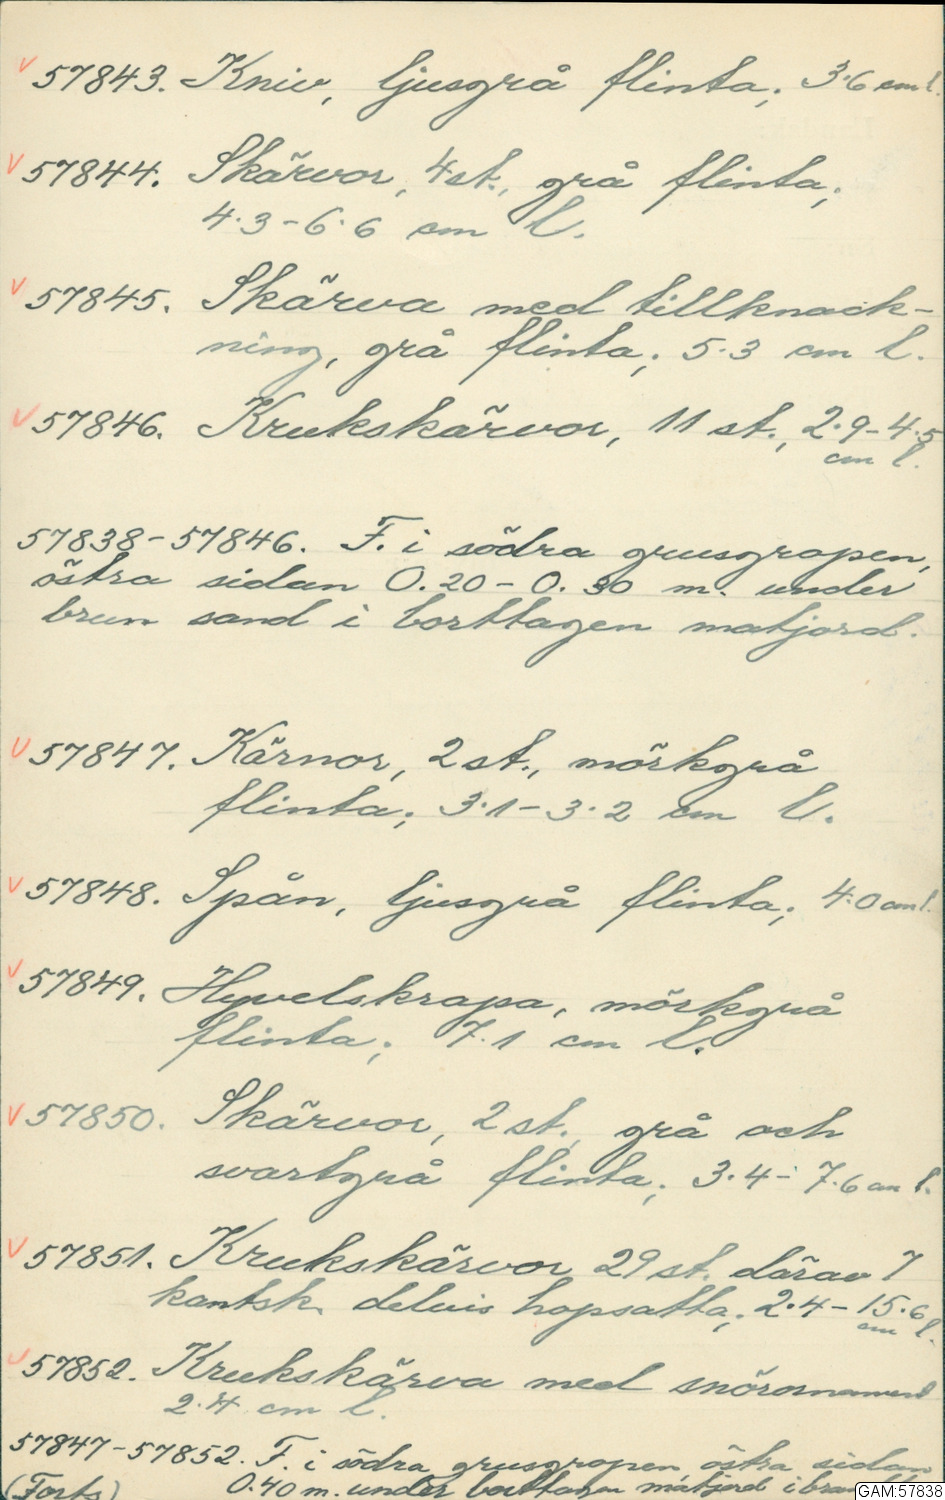 v 57843. Kniv, ljusgrå flinta; 3.6 cm l.
v 57844. Skärvor, 4 st., grå flinta;
4.3-6.6 cm l.
v 57845. Skärva med tillknack-
ning, grå flinta; 5.3 cm l.
v 57846. Krukskärvor, 11 st., 2.9-4.5
cm l.
57838-57846. F. i södra grusgropen,
östra sidan 0.20-0.30 m. under
brun sand i borttagen matjord.
v 57847. Kärnor, 2 st., mörkgrå
flinta; 3.1-3.2 cm l.
v 57848. Spån, ljusgrå flinta; 4.0 cm l.
v 57849. Hyvelskrapa, mörkgrå
flinta; 7.1 cm l.
v 57850. Skärvor, 2 st., grå och
svartgrå flinta; 3.4-7.6 cm l.
v 57851. Krukskärvor 29 st. därav 7
kantsk. delvis hopsatta; 2.4-15.6
cm l.
v 57852. Krukskärva med snörornament
2.4 cm l.
57847-57852. F. i södra grusgropen, östra sidan
0.40 m. under borttagen matjord i
(Forts)
GAM:57838